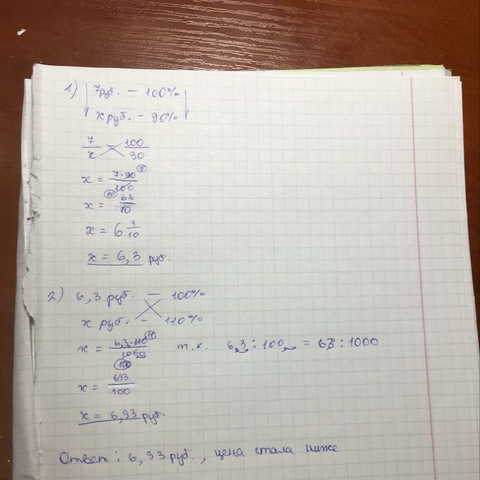 1) 7 руб. — 100%
x руб. - 90%
7/x = 100/90
x = 7·90/100
x = 63/10
x = 6 3/10
x = 6,3 руб.
2) 6,3 руб. — 100%
x руб. - 110%
x = 63·110/1000 т.к. 6,3 : 100 = 63 : 1000
x = 693/100
x = 6,93 руб.
Ответ: 6,93 руб., цена стала ниже